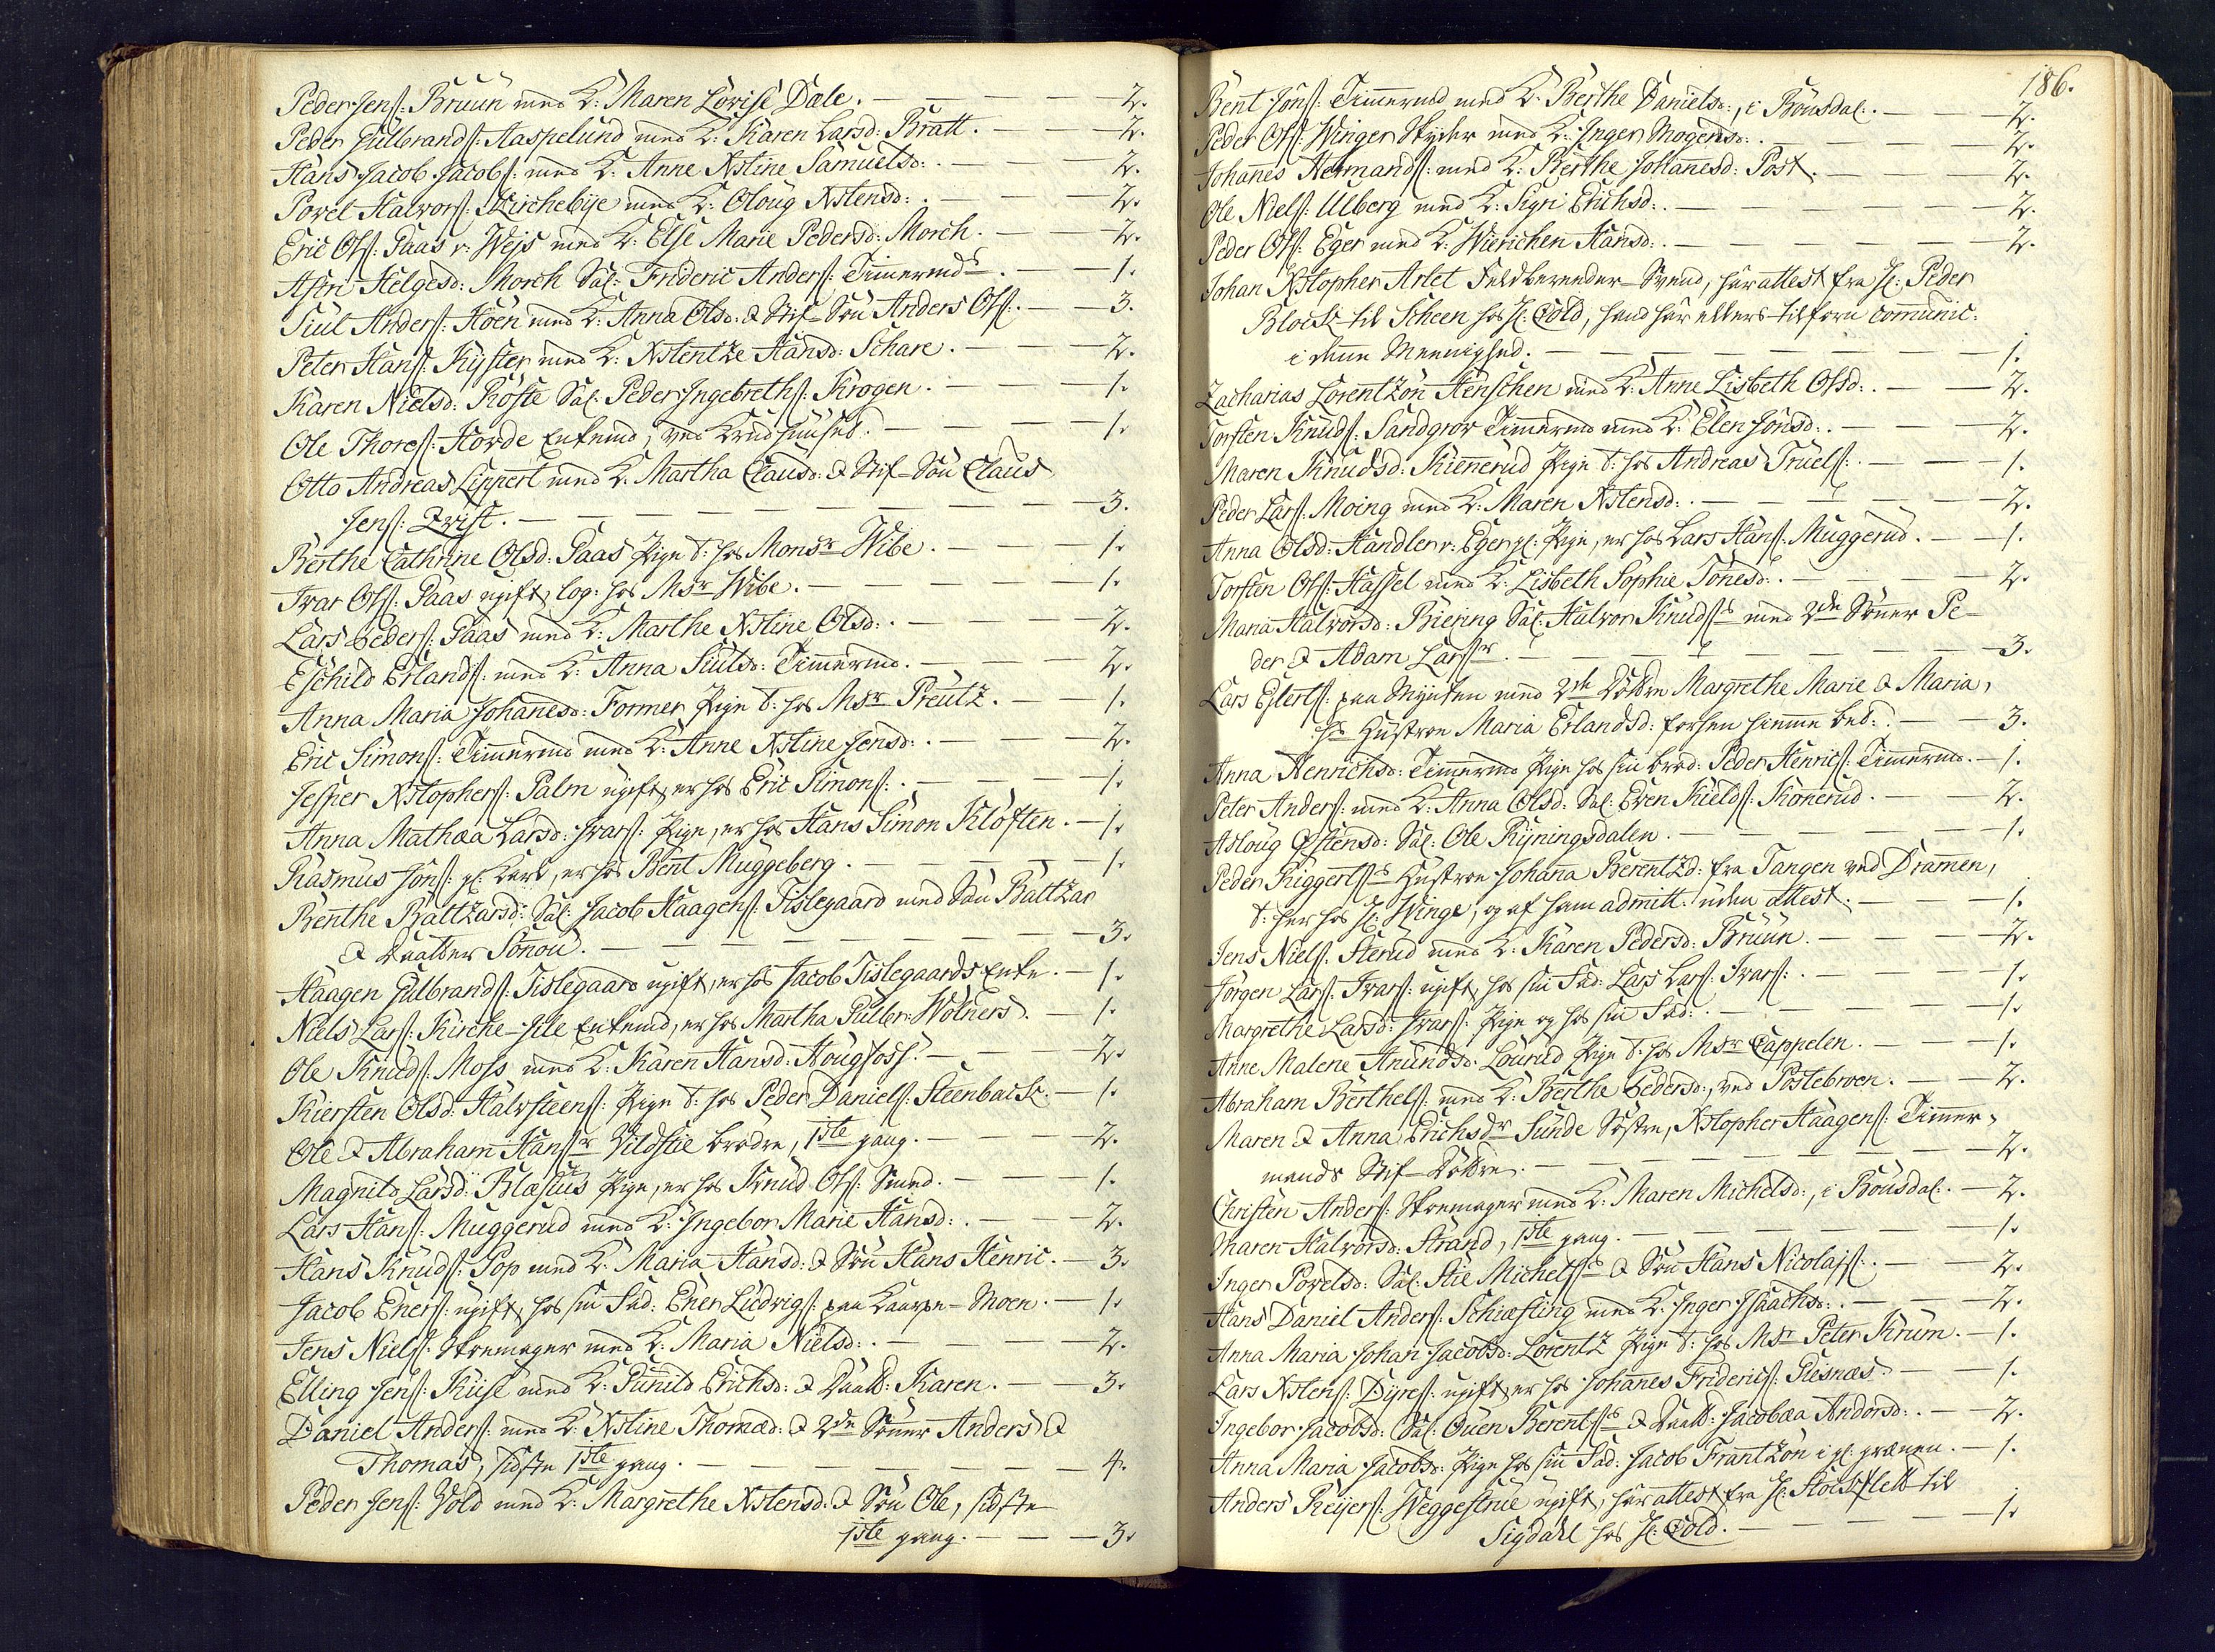 Peder Jenſ: Bruun med K: Maren Lovise Dale. — 2.
Peder Gulbrandſ: Aaspelund med K: Karen Larsd: Bratt. — 2.
Hans Jacob Jacobſ: med K: Anne Xstine Samuelsd: — 2.
Povel Halvorſ: Kirchebye med K: Oloug Xstensd: — 2.
Eric Olſ: Paas v: Wejs med K: Else Marie Pedersd: Morch. — 2.
Astri Helgesd: Morch Sal: Frideric Anderſ: Timermds. — 1.
Siul Anderſ: Höen med K: Anna Olsd: & Stif-Sön Anders Olſ: — 3.
Peter Hanſ: Kyster med K: Xstentze Hansd: Schare. — 2.
Karen Nielsd: Röste Sal: Peder Ingebrethſ: Krogen. — 1.
Ole Thoreſ: Horde Enkemd, ved Krudhuuset. — 1.
Otto Andreas Lippert med K: Martha Clausd: & Stif-Sön Claus
Jenſ: Qvist. — 3.
Berthe Cathrine Olsd: Paas Pige t: hos Monsr Wibe. — 1.
Ivar Olſ: Paas ugift, log: hos Msr Wibe. — 1.
Lars Pederſ: Paas med K: Marthe Xstine Olsd: — 2.
Eschild Erlandſ: med K: Anna Siulsd: Timermd. — 2.
Anna Maria Johanesd: Former Pige t: hos Msr Preutz. — 1.
Eric Simonſ: Timermd med K: Anne Xstine Jensd: — 2.
Jesper Xstopherſ: Palm ugift, er hos Eric Simonſ: — 1.
Anna Mathæa Larsd: Ivarſ: Pige, er hos Hans Simon Klöften. — 1.
Rasmus Jonſ: gl: Karl, er hos Bent Muggeberg. — 1.
Benthe Baltzarsd: Sal: Jacob Haagenſ: Tislegaard med Sön Baltzar
& Daatter Sonou. — 3.
Haagen Gulbrandſ: Tislegaard ugift, er hos Jacob Tislegaards Enke. — 1.
Niels Larſ: Kirche-Jile Enkemd, er hos Martha Gulbr: Wolners. — 1.
Ole Knudſ: Moss med K: Karen Hansd: Hougfoss. — 2.
Kiersten Olsd: Halvsteenſ: Pige t: hos Peder Danielſ: Steenback. — 1.
Ole & Abraham Hanſr Vildstie brödre, 1ste gang. — 2.
Magnild Larsd: Blasius Pige, er hos Knud Olſ: Smed. — 1.
Lars Hanſ: Muggerud med K: Ingebor Marie Hansd: — 2.
Hans Knudſ: Pop med K: Maria Hansd: & Sön Hans Henric. — 3.
Jacob Enerſ: ugift, hos sin Fad: Ener Ludvigſ: paa Kaarpe-Moen. — 1.
Jens Nielſ: Skomager med K: Maria Nielsd: — 2.
Elling Jenſ: Kiise med K: Gunild Erichsd: & Daatt: Karen. — 3.
Daniel Anderſ: med K: Xstine Thomæd: & 2de Sönner Anders &
Thomas, sidste 1ste gang. — 4.
Peder Jenſ: Vold med K: Margrethe Xstensd: & Sön Ole, sidste
1ste gang. — 3.
186.
Bent Jonſ: Timermd med K: Berthe Danielsd:, i Bönsdal: — 2.
Peder Olſ: Winger Skyder med K: Inger Mogensd: — 2.
Johanes Hermandſ: med K: Berthe Johanesd: Post. — 2.
Ole Nielſ: Ulberg med K: Sigri Erichsd: — 2.
Peder Olſ: Eger med K: Wierichen Hansd: — 2.
Johan Xstopher Arlet Feldbereeder-Svend, har attest fra Hr: Peder
Block til Scheen hos Hr: Cold, hand har ellers tilforn comunic:
i denne Meenighed. — 1.
Zacharias Lorentzön Henschen med K: Anne Lisbeth Olsd: — 2.
Torsten Knudſ: Sandgrov Timermd med K: Elen Jonsd: — 2.
Maren Knudsd: Kiennerud Pige t: hos Andreas Truelſ: — 1.
Peder Larſ: Moing med K: Maren Xstensd: — 2.
Anna Olsd: Handler v: Eger gl: Pige, er hos Lars Hanſ: Muggerud. — 1.
Torsten Olſ: Hassel med K: Lisbeth Sophie Tönesd: — 2.
Maria Halvorsd: Biering Sal: Halvor Knudſs med 2de Sönner Pe-
der & Adam Larſr. — 3.
Lars Ejlertſ: paa Mynten med 2de Döttre Margrethe Marie & Maria,
hs Hustroe Maria Erlandsd: forhen hiemme bet: — 3.
Anna Henrichsd: Timermd Pige hos sin brod: Peder Henricſ: Timermd. — 1.
Peter Anderſ: med K: Anna Olsd: Sal: Even Kieldſ: Konerud. — 2.
Asloug Östensd: Sal: Ole Ryningsdalen. — 1.
Peder Riggertſs Hustroe Johana Berentzd: fra Tangen ved Dramen,
t: her hos Hr: Winge, og af ham admitt: uden attest. — 1.
Jens Nielſ: Sterud med K: Karen Pedersd: Bruun. — 2.
Jörgen Larſ: Ivarſ: ugift, hos sin Fad: Lars Larſ: Ivarſ: — 1.
Margrethe Larsd: Ivarſ: Pige og hos sin Fad: — 1.
Anne Malene Anundsd: Lourud Pige t: hos Msr Cappelen. — 1.
Abraham Berthelſ: med K: Berthe Pedersd:, ved Postebroen. — 2.
Maren & Anna Erichsdr Sunde Söstre, Xstopher Haagenſ: Timer-
mands Stif-Döttre. — 2.
Christen Anderſ: Skomager med K: Maren Michelsd:, i Bönsdal: — 2.
Maren Halvorsd: Strand, 1ste gang. — 1.
Inger Povelsd: Sal: Stie Michelſs & Sön Hans Nicolajſ: — 2.
Hans Daniel Anderſ: Schiæsling med K: Inger Isaachsd: — 2.
Anna Maria Johan Jacobsd: Lorentz Pige t: hos Msr Peter Krum. — 1.
Lars Xstenſ: Dyreſ: ugift, er hos Johanes Fridericſ: Resnæs. — 1.
Ingebor Jacobsd: Sal: Ouen Berentſs & Daatt: Jacobæa Andersd: — 2.
Anna Maria Jacobsd: Pige hos sin Fad: Jacob Frantzön i gl: grænen. — 1.
Anders Reijerſ: Weggestrue ugift, har attest fra Hr: Stockfleth til
Sigdahl hos Hr: Cold. — 1.